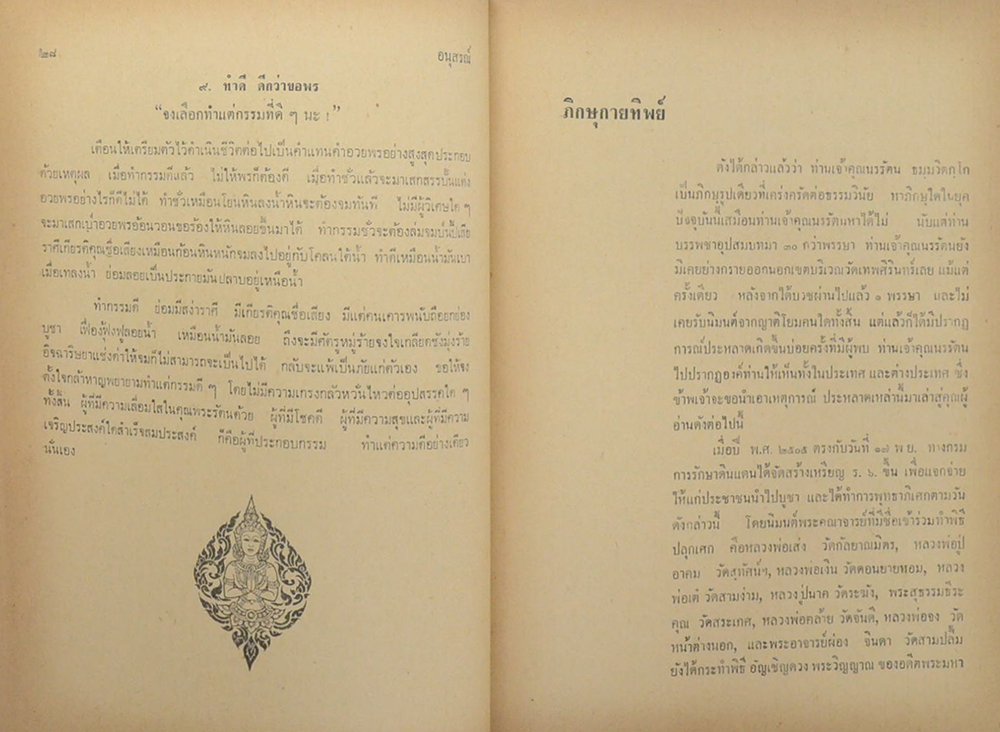 ๒๘
อนุสรณ์
๙. ทำดี ดีกว่าขอพร
“จงเลือกทำแต่กรรมที่ดี ๆ นะ !”
เตือนให้เตรียมตัวไว้ดำเนินชีวิตต่อไปเป็นคำแทนคำอวยพรอย่างสูงสุดประกอบ
ด้วยเหตุผล เมื่อทำกรรมดีแล้ว ไม่ให้พรก็ต้องดี เมื่อทำชั่วแล้วจะมาเสกสรรปั้นแต่ง
อวยพรอย่างไรก็ดีไม่ได้ ทำชั่วเหมือนโยนหินลงน้ำหินจะต้องจมทันที ไม่มีผู้วิเศษใด ๆ
จะมาเสกเป่าอวยพรอ้อนวอนขอร้องให้หินลอยขึ้นมาได้ ทำกรรมชั่วจะต้องล่มจมป่นปี้เสีย
ราศีเกียรติคุณชื่อเสียงเหมือนก้อนหินหนักจมลงไปอยู่กับโคลนใต้น้ำ ทำดีเหมือนน้ำมันเบา
เมื่อเทลงน้ำ ย่อมลอยเป็นประกายมันปลาบอยู่เหนือน้ำ
ทำกรรมดี ย่อมมีสง่าราศี มีเกียรติคุณชื่อเสียง มีแต่คนเคารพนับถือยกย่อง
บูชา เฟื่องฟุ้งฟูลอยน้ำ เหมือนน้ำมันลอย ถึงจะมีศัตรูหมู่ร้ายจงใจเกลียดชังมุ่งร้าย
อิจฉาริษยาแช่งด่าให้จมก็ไม่สามารถจะเป็นไปได้ กลับจะแพ้เป็นภัยแก่ตัวเอง ขอให้จง
ตั้งใจกล้าหาญพยายามทำแต่กรรมดี ๆ โดยไม่มีความเกรงกลัวหวั่นไหวต่ออุปสรรคใด ๆ
ทั้งสิ้น ผู้ที่มีความเลื่อมใสในคุณพระรัตนด้วย ผู้ที่มีโชคดี ผู้ที่มีความสุขและผู้ที่มีความ
เจริญประสงค์ใดสำเร็จสมประสงค์ ก็คือผู้ที่ประกอบกรรม ทำแต่ความดีอย่างเดียว
นั่นเอง
ภิกษุกายทิพย์
ดังได้กล่าวแล้วว่า ท่านเจ้าคุณนรรัตน ธมฺมวิตกฺโก
เป็นภิกษุรูปเดียวที่เคร่งครัดต่อธรรมวินัย หาภิกษุใดในยุค
ปัจจุบันนี้เสมือนท่านเจ้าคุณนรรัตนหาได้ไม่ นับแต่ท่าน
บรรพชาอุปสมบทมา ๓๐ กว่าพรรษา ท่านเจ้าคุณนรรัตนยัง
มิเคยย่างกรายออกนอกเขตบริเวณวัดเทพศิรินทร์เลย แม้แต่
ครั้งเดียว หลังจากได้บวชผ่านไปแล้ว ๑ พรรษา และไม่
เคยรับนิมนต์จากญาติโยมคนใดทั้งสิ้น แต่แล้วก็ได้มีปรากฏ
การณ์ประหลาดเกิดขึ้นบ่อยครั้งที่มีผู้พบ ท่านเจ้าคุณนรรัตน
ไปปรากฏองค์ท่านให้เห็นทั้งในประเทศ และต่างประเทศ ซึ่ง
ข้าพเจ้าจะขอนำเอาเหตุการณ์ ประหลาดเหล่านี้มาเล่าสู่คุณผู้
อ่านดังต่อไปนี้
เมื่อปี พ.ศ. ๒๕๐๕ ตรงกับวันที่ ๑๗ พ.ย. ทางกรม
การรักษาดินแดนได้จัดสร้างเหรียญ ร. ๖. ขึ้น เพื่อแจกจ่าย
ให้แก่ประชาชนนำไปบูชา และได้ทำการพุทธาภิเศกตามวัน
ดังกล่าวนี้ โดยนิมนต์พระคณาจารย์ที่มีชื่อเข้าร่วมทำพิธี
ปลุกเศก คือหลวงพ่อเส่ง วัดกัลยาณมิตร, หลวงพ่อปู่
อาคม วัดสุทัศน์ฯ, หลวงพ่อเงิน วัดดอนยายหอม, หลวง
พ่อเต๋ วัดสามง่าม, หลวงปู่นาค วัดระฆัง, พระสุธรรมธีระ
คุณ วัดสระเกศ, หลวงพ่อคล้าย วัดจันดี, หลวงพ่อจง วัด
หน้าต่างนอก, และพระอาจารย์ผ่อง จินดา วัดสามปลื้ม
ยังได้กระทำพิธี อัญเชิญดวง พระวิญญาณ ของอดีตพระมหา